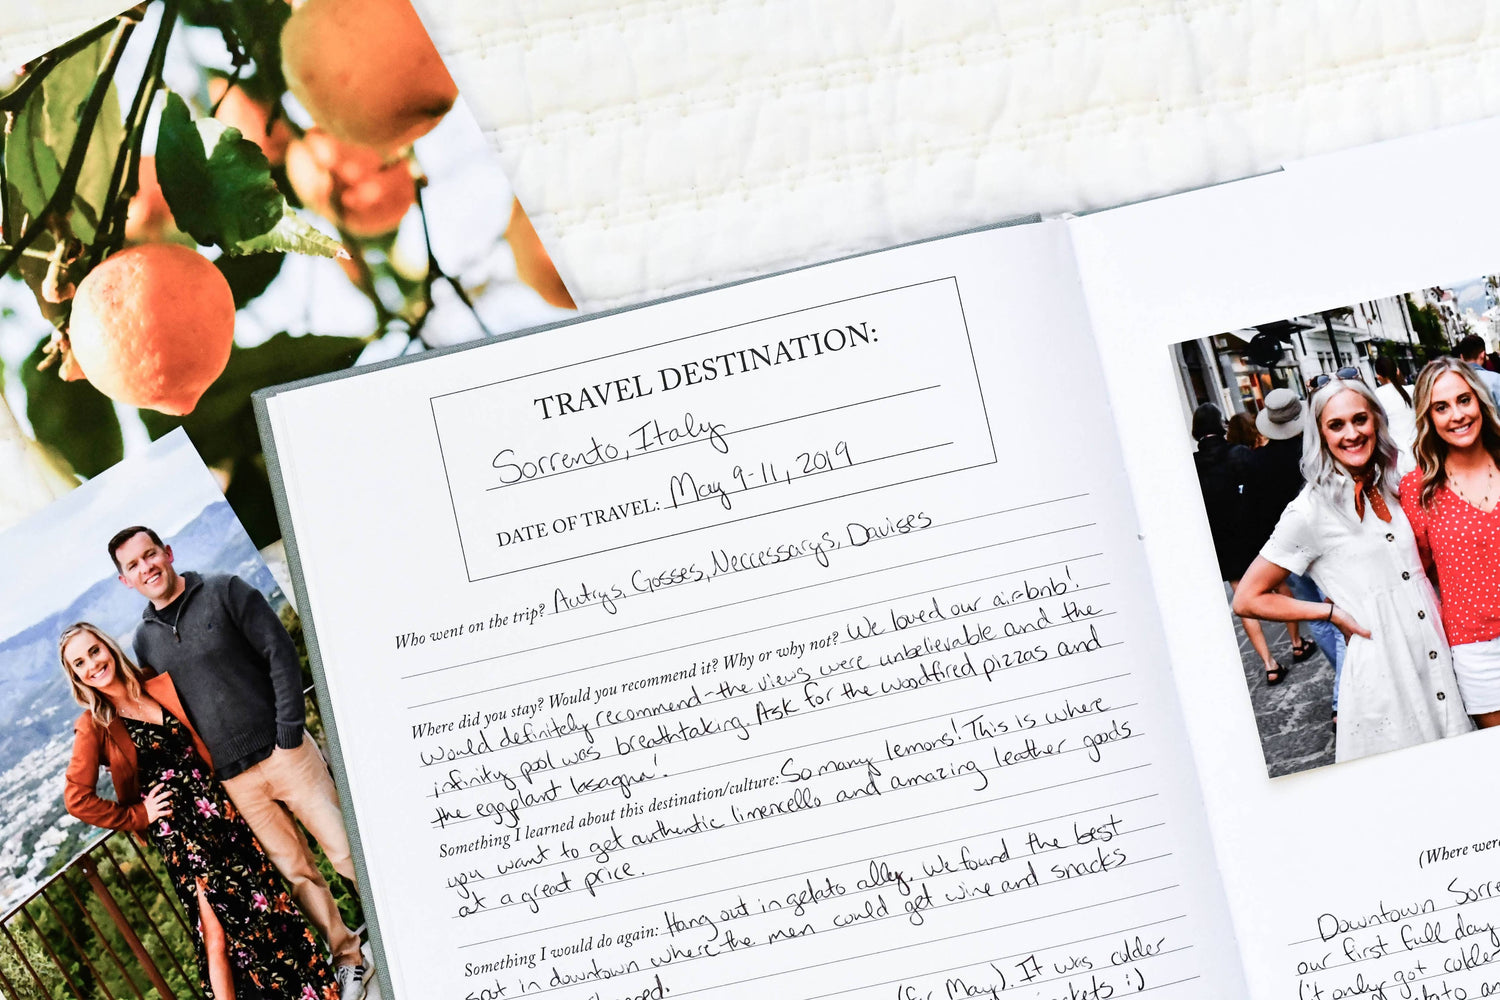 TRAVEL DESTINATION:
Sorrento, Italy
DATE OF TRAVEL: May 9-11, 2019
Who went on the trip? Autrys, Gosses, Neccessarys, Davises
Where did you stay? Would you recommend it? Why or why not? We loved our airbnb!
Would definitely recommend - the views were unbelievable and the
infinity pool was breathtaking. Ask for the woodfired pizzas and
the eggplant lasagna!
Something I learned about this destination/culture: So many lemons! This is where
you want to get authentic limencello and amazing leather goods
at a great price.
Something I would do again: Hang out in gelato ally. We found the best
spot in downtown where the men could get wine and snacks
(for May). It was colder
:)
(Where were
Downtown Sorre
our first full day
(it only got colder